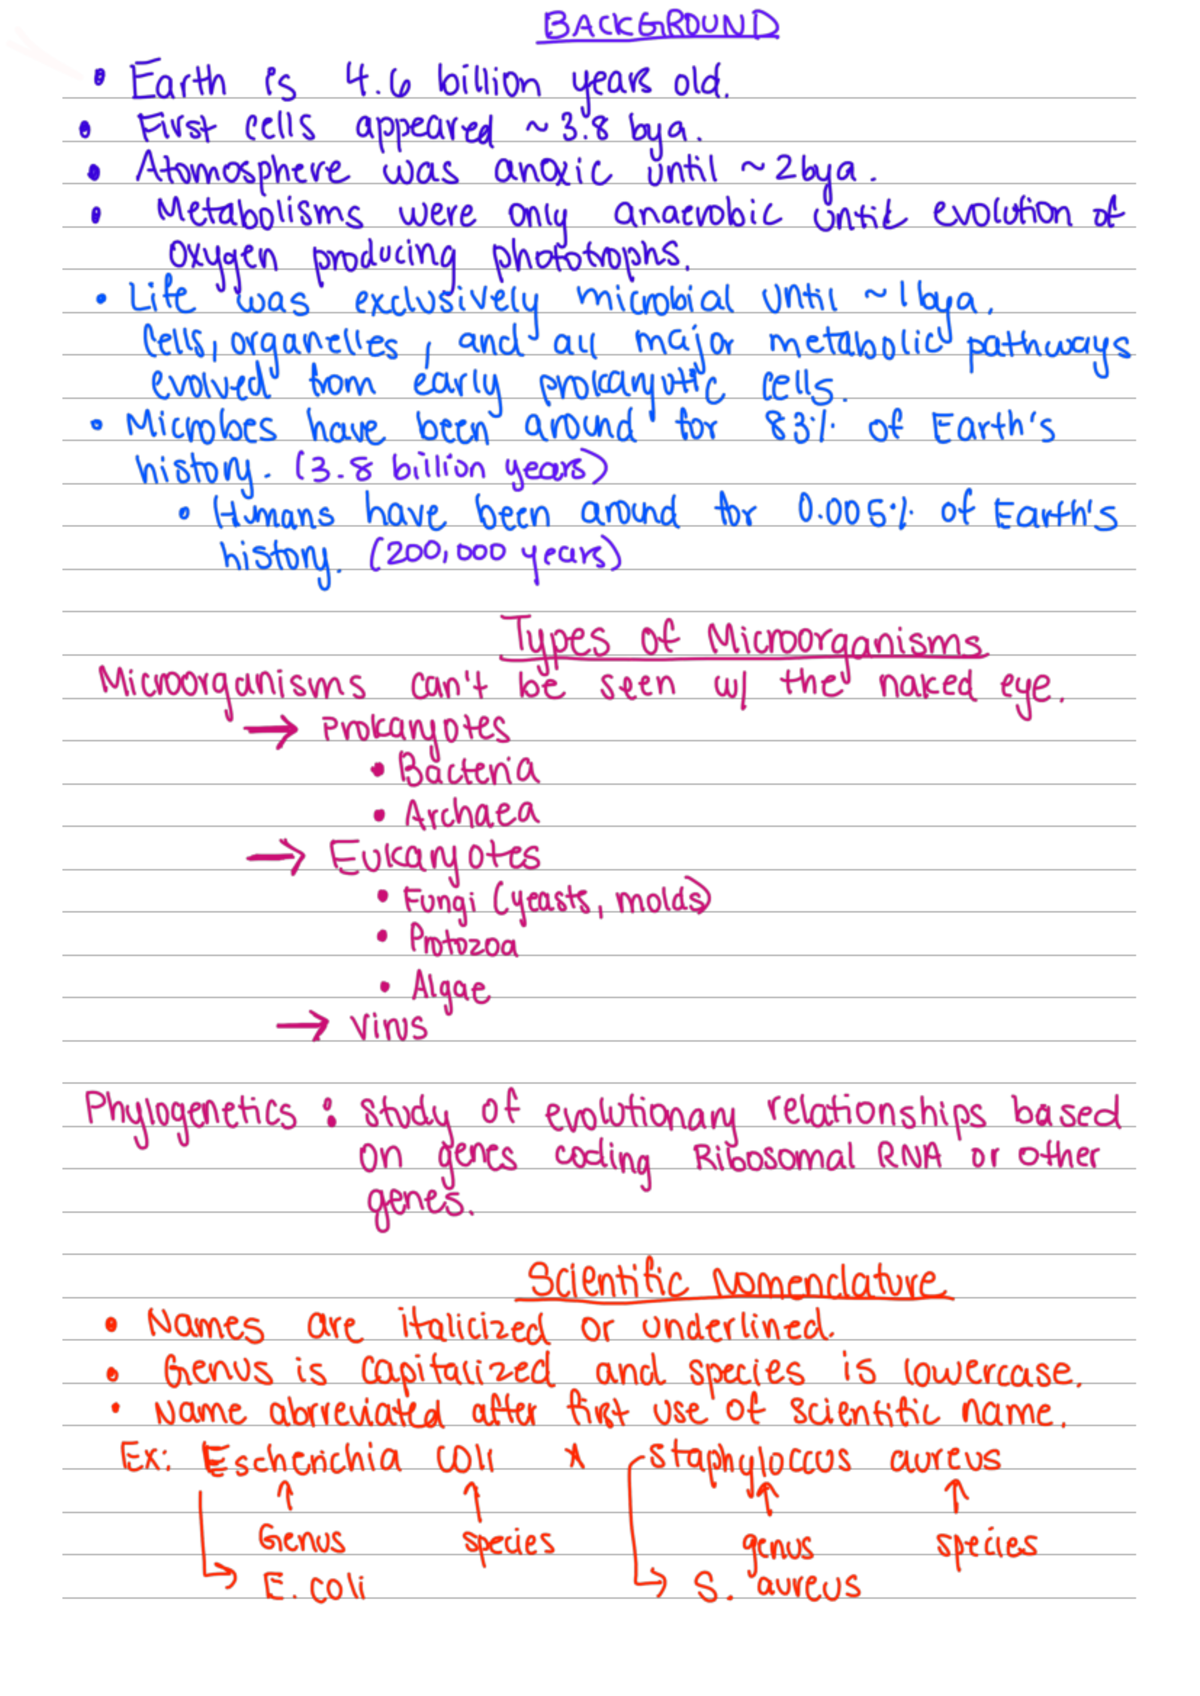 BACKGROUND
• Earth is 4.6 billion years old.
• First cells appeared ~3.8 bya.
• Atomosphere was anoxic until ~2bya.
• Metabolisms were only anaerobic until evolution of
oxygen producing phototrophs.
• Life was exclusively microbial until ~1bya.
Cells, organelles, and all major metabolic pathways
evolved from early prokaryotic cells.
• Microbes have been around for 83% of Earth's
history. (3.8 billion years)
• Humans have been around for 0.005% of Earth's
history. (200,000 years)
Types of Microorganisms
Microorganisms can't be seen w/ the naked eye.
→ Prokaryotes
• Bacteria
• Archaea
→ Eukaryotes
• Fungi (yeasts, molds)
• Protozoa
• Algae
→ Virus
Phylogenetics : study of evolutionary relationships based
on genes coding Ribosomal RNA or other
genes.
Scientific Nomenclature
• Names are italicized or underlined.
• Genus is capitalized and species is lowercase.
• Name abrreviated after first use of scientific name.
Ex: Escherichia coli * Staphyloccus aureus
↑ ↑ ↑ ↑
Genus species genus species
→ E. coli → S. aureus